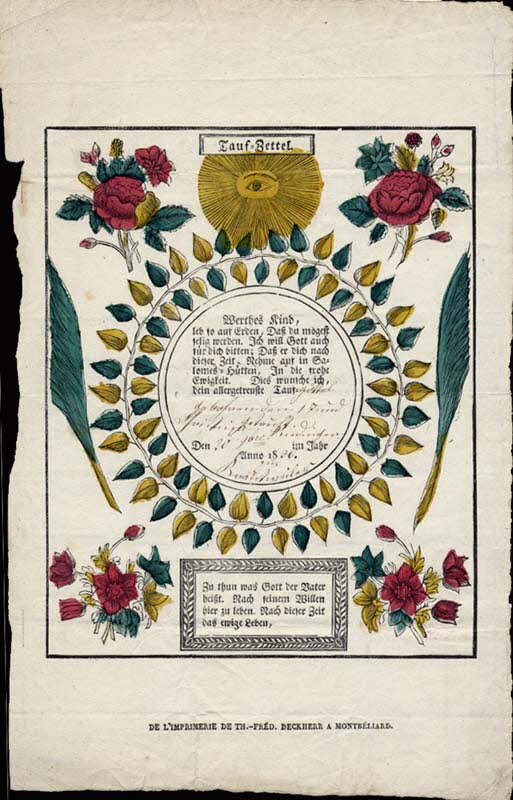 Tauf-Zettel.
Werthes Kind,
leb so auf Erden, Daß du mögest
selig werden. Ich will Gott auch
für dich bitten; Daß er dich nach
dieser Zeit, Nehme auf in Sa-
lomes-Hütten, In die frohe
Ewigkeit. Dies wünsche ich,
dein allergetreuste Tauf
Den im Jahr
Anno 18
Zu thun was Gott der Vater
heißt. Nach seinem Willen
hier zu leben. Nach dieser Zeit
das ewige Leben,
DE L'IMPRIMERIE DE TH.-FRÉD. DECKHERR A MONTBÉLIARD.